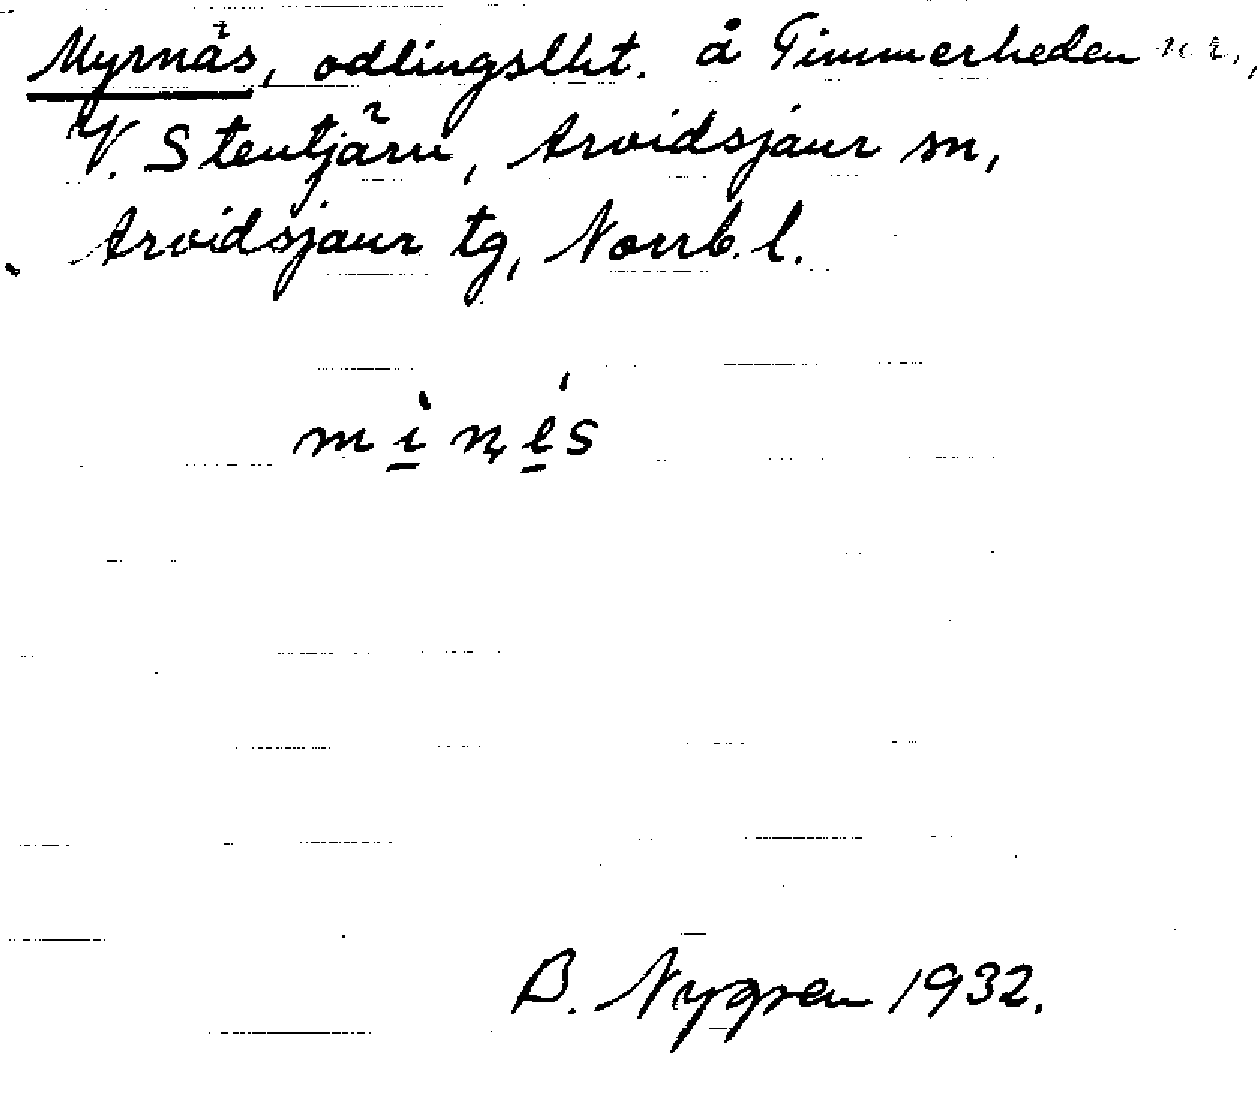 Myrnäs, odlingslht. å Timmerheden nr.,
V. Stentjärn, Arvidsjaur sn,
Arvidsjaur tg, Norrb. l.
mìṇés
B. Nygren 1932.